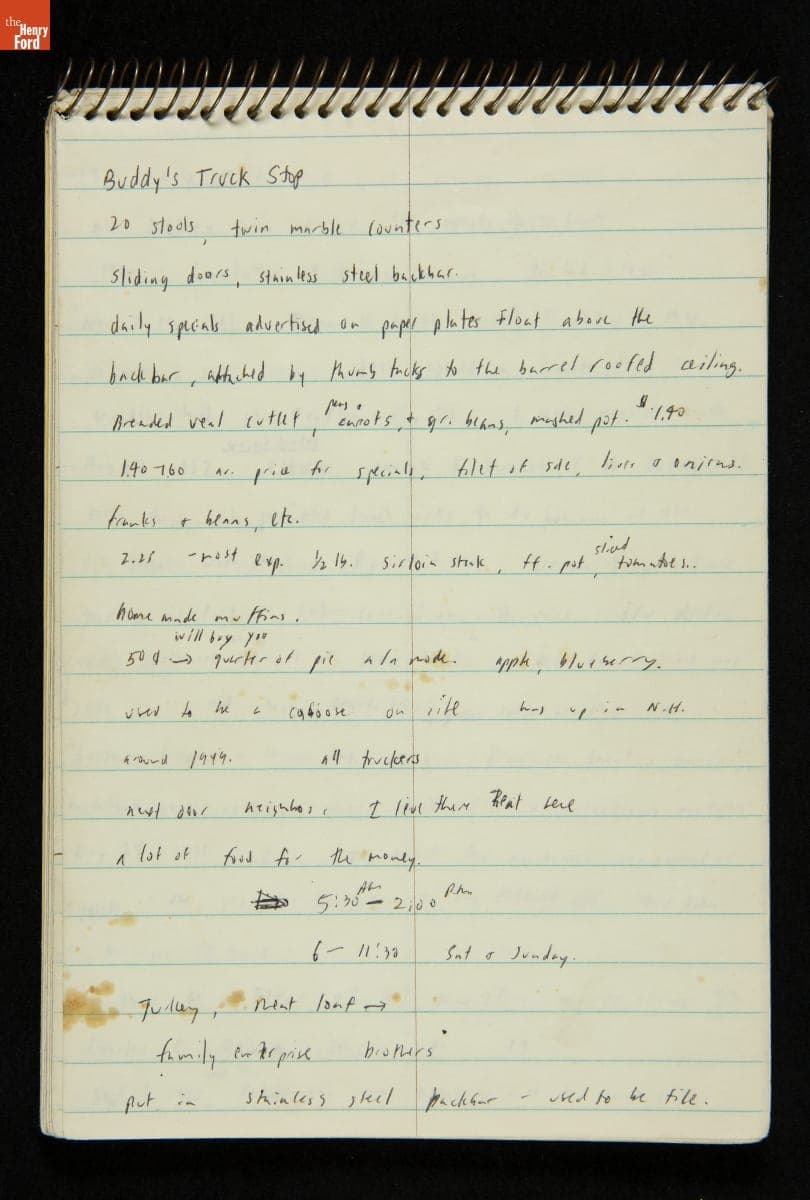 the
Henry
Ford
Buddy's Truck Stop
20 stools, twin marble counters
sliding doors, stainless steel backbar.
daily specials advertised on paper plates float above the
backbar, attached by thumb tacks to the barrel roofed ceiling.
Breaded veal cutlet, peas + carrots, + gr. beans, mashed pot. $1.40
1.40-160 av. price for specials. filet of sole, liver + onions.
franks + beans, etc.
2.25 - most exp. 1/2 lb. sirloin steak, ff. pot, sliced tomatoes..
home made muffins.
will buy you
50¢ → quarter of pie a la mode. apple, blueberry.
used to be a caboose on site was up in N.H.
around 1949. all truckers
next door neighbor. I live there eat here
a lot of food for the money.
5:30 AM - 2:00 P.M.
6 - 11:30 Sat + Sunday.
Turkey, meat loaf →
family enterprise brothers
put in stainless steel backbar - used to be tile.